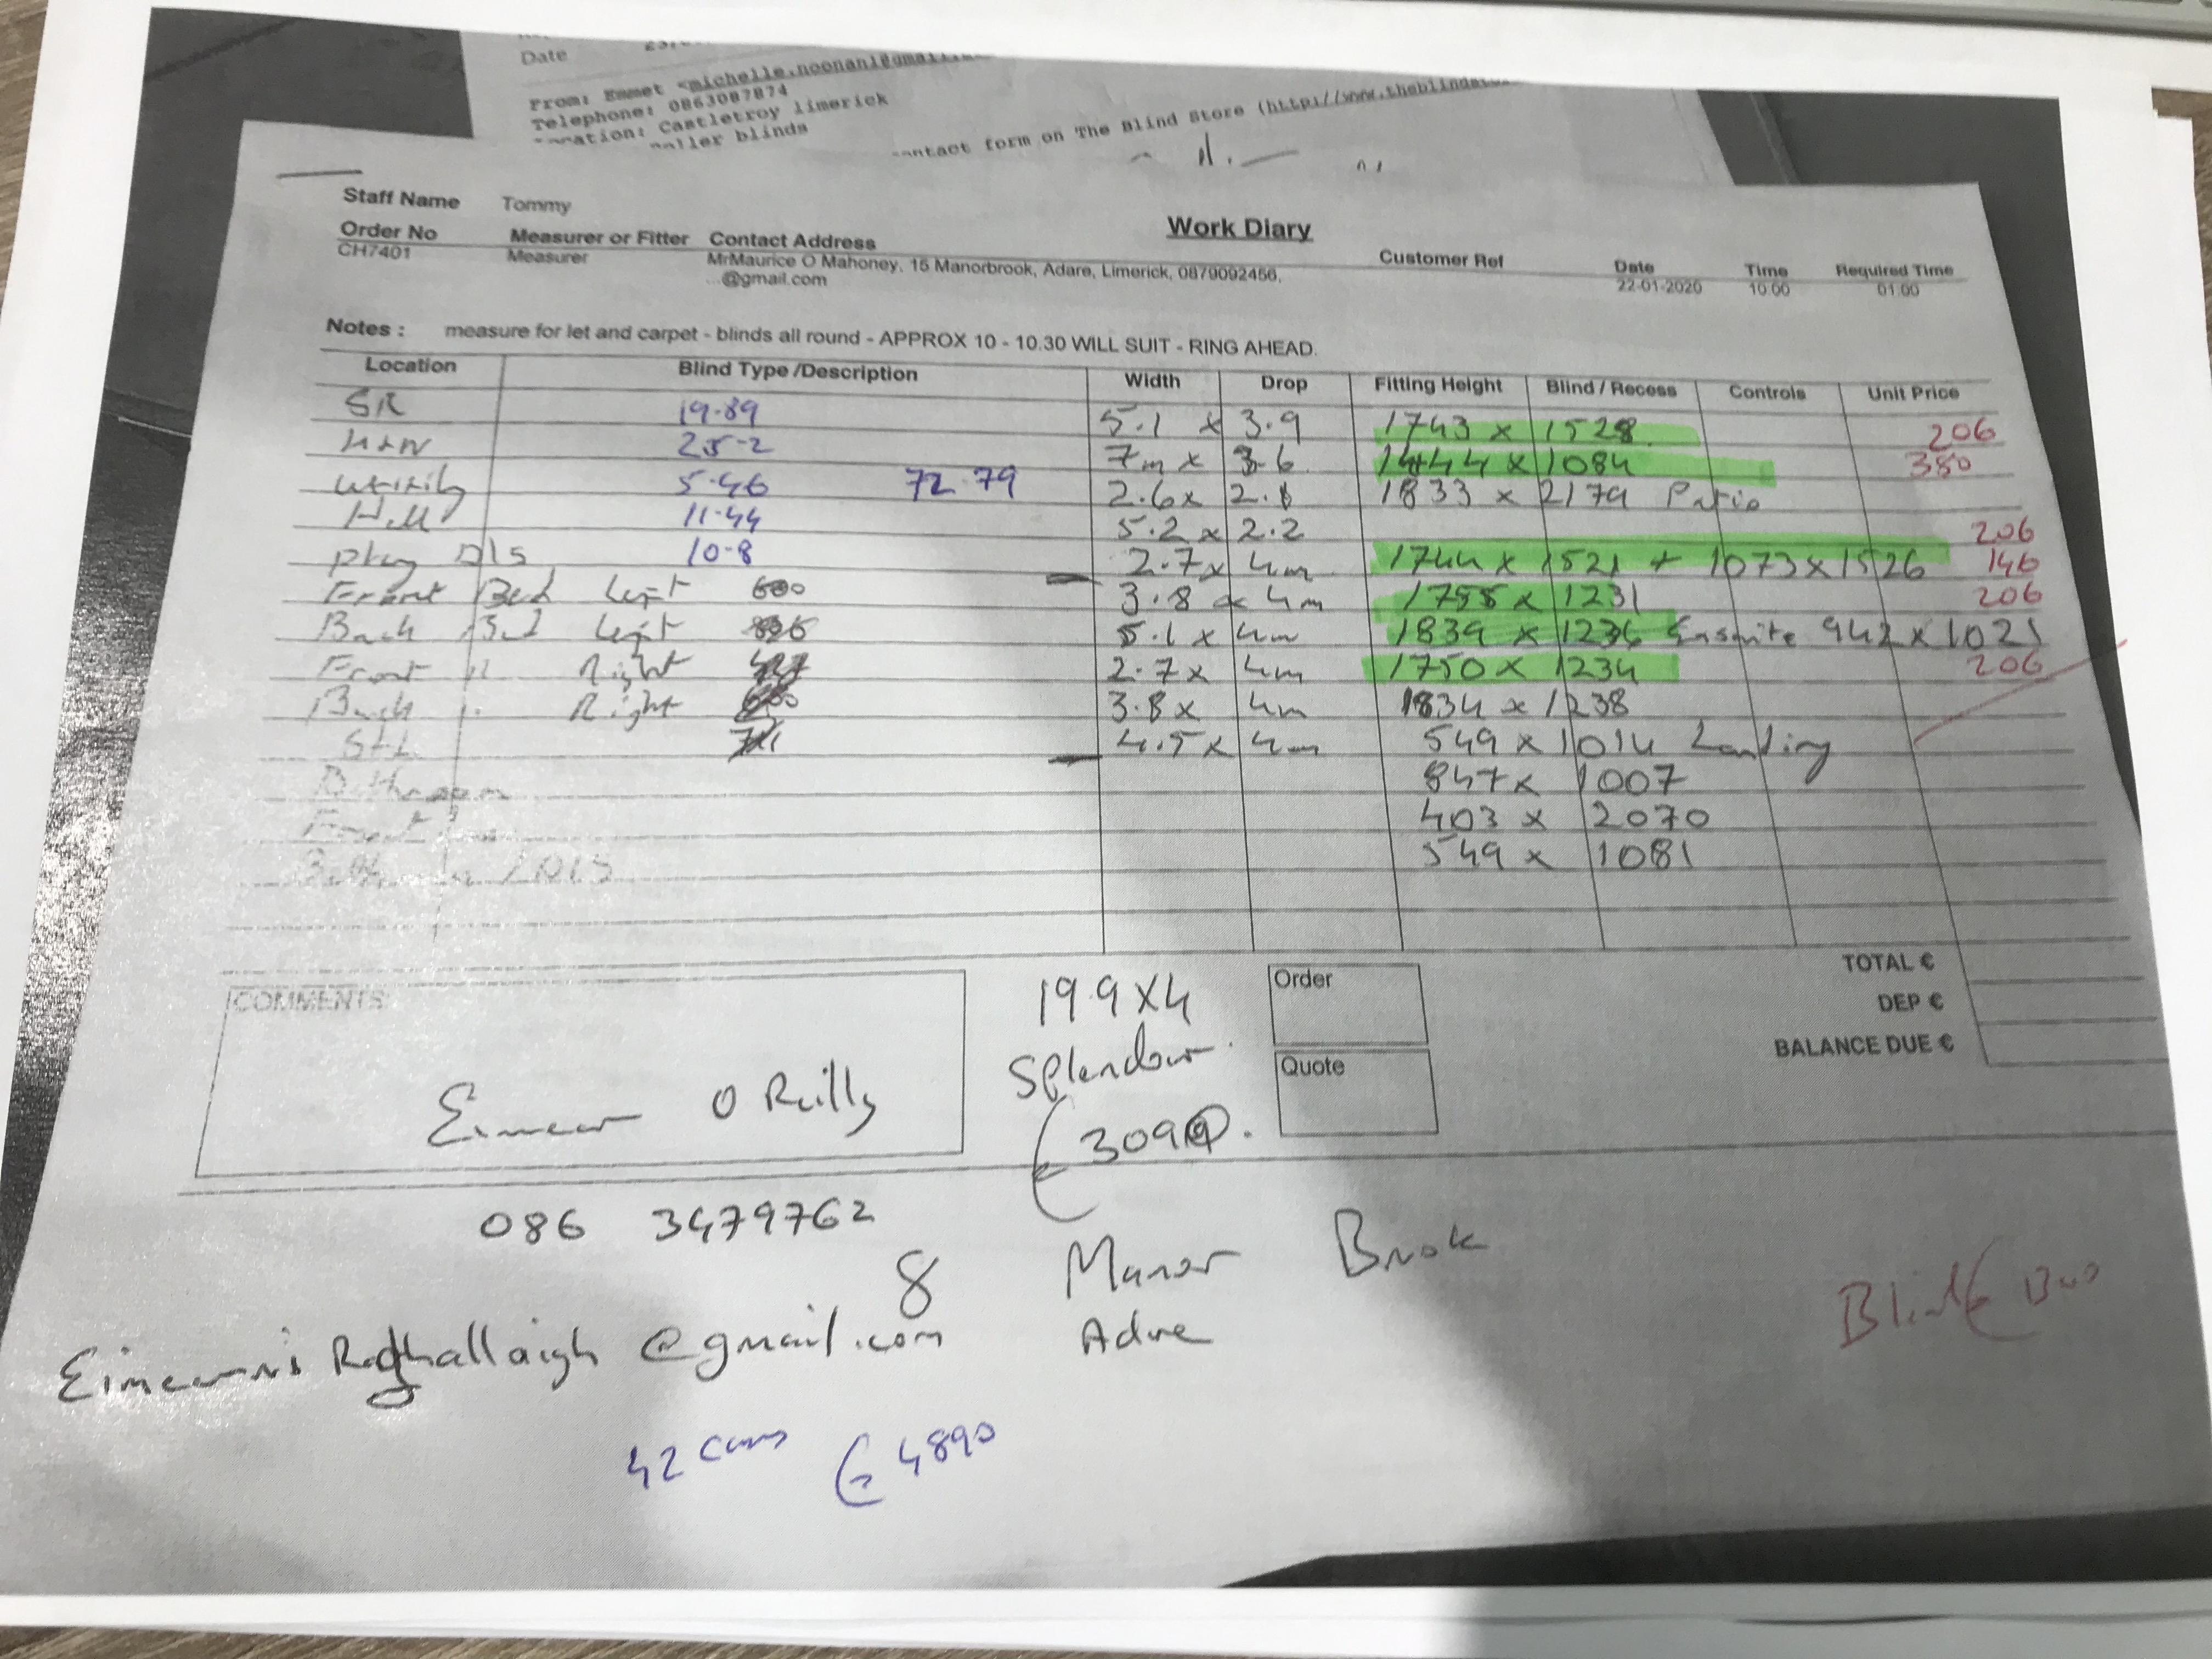 Date
From: Emmet <michelle.noonan1@gmail.
Telephone: 0863087874
Location: Castletroy limerick
roller blinds
contact form on The Blind Store (http://www.theblindsto
Work Diary
Staff Name Tommy
Order No Measurer or Fitter Contact Address Customer Ref Date Time Required Time
CH7401 Measurer MrMaurice O Mahoney, 15 Manorbrook, Adare, Limerick, 0879092456, 22-01-2020 10:00 01:00
...@gmail.com
Notes : measure for let and carpet - blinds all round - APPROX 10 - 10.30 WILL SUIT - RING AHEAD.
Location Blind Type /Description Width Drop Fitting Height Blind / Recess Controls Unit Price
SR 19.89 5.1 x 3.9 1743 x 1528 206
25-2 7m x 3.6 1444 x 1084 380
Utility 5.46 72.79 2.6 x 2.1 1833 x 2179 Patio
Hall 11.44 5.2 x 2.2 206
play D/S 10-8 2.7 x 4m 1744 x 1521 + 1073 x 1526 146
Front Bed Left 3.8 x 4m 1755 x 1231 206
Back Bed Left 5.1 x 4m 1839 x 1236 Ensuite 942 x 1021
Front " Right 2.7 x 4m 1750 x 1234 206
Back " Right 3.8 x 4m 1834 x 1238
S+L 4.5 x 4m 549 x 1014 Landing
Bathroom 847 x 1007
Front 403 x 2070
549 x 1081
TOTAL €
DEP €
BALANCE DUE €
COMMENTS
Order
Quote
19.9 X 4
Splendour
€ 309
Eimear O Reilly
086 3479762
8 Manor Brook
Adare
@gmail.com
Blinds €
42 Cums € 4890